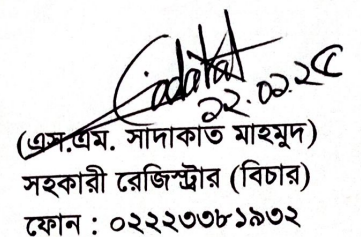 ২২.০২.২৫
(এস.এম. সাদাকাত মাহমুদ)
সহকারী রেজিস্ট্রার (বিচার)
ফোন : ০২২২৩৩৮১৯৩২